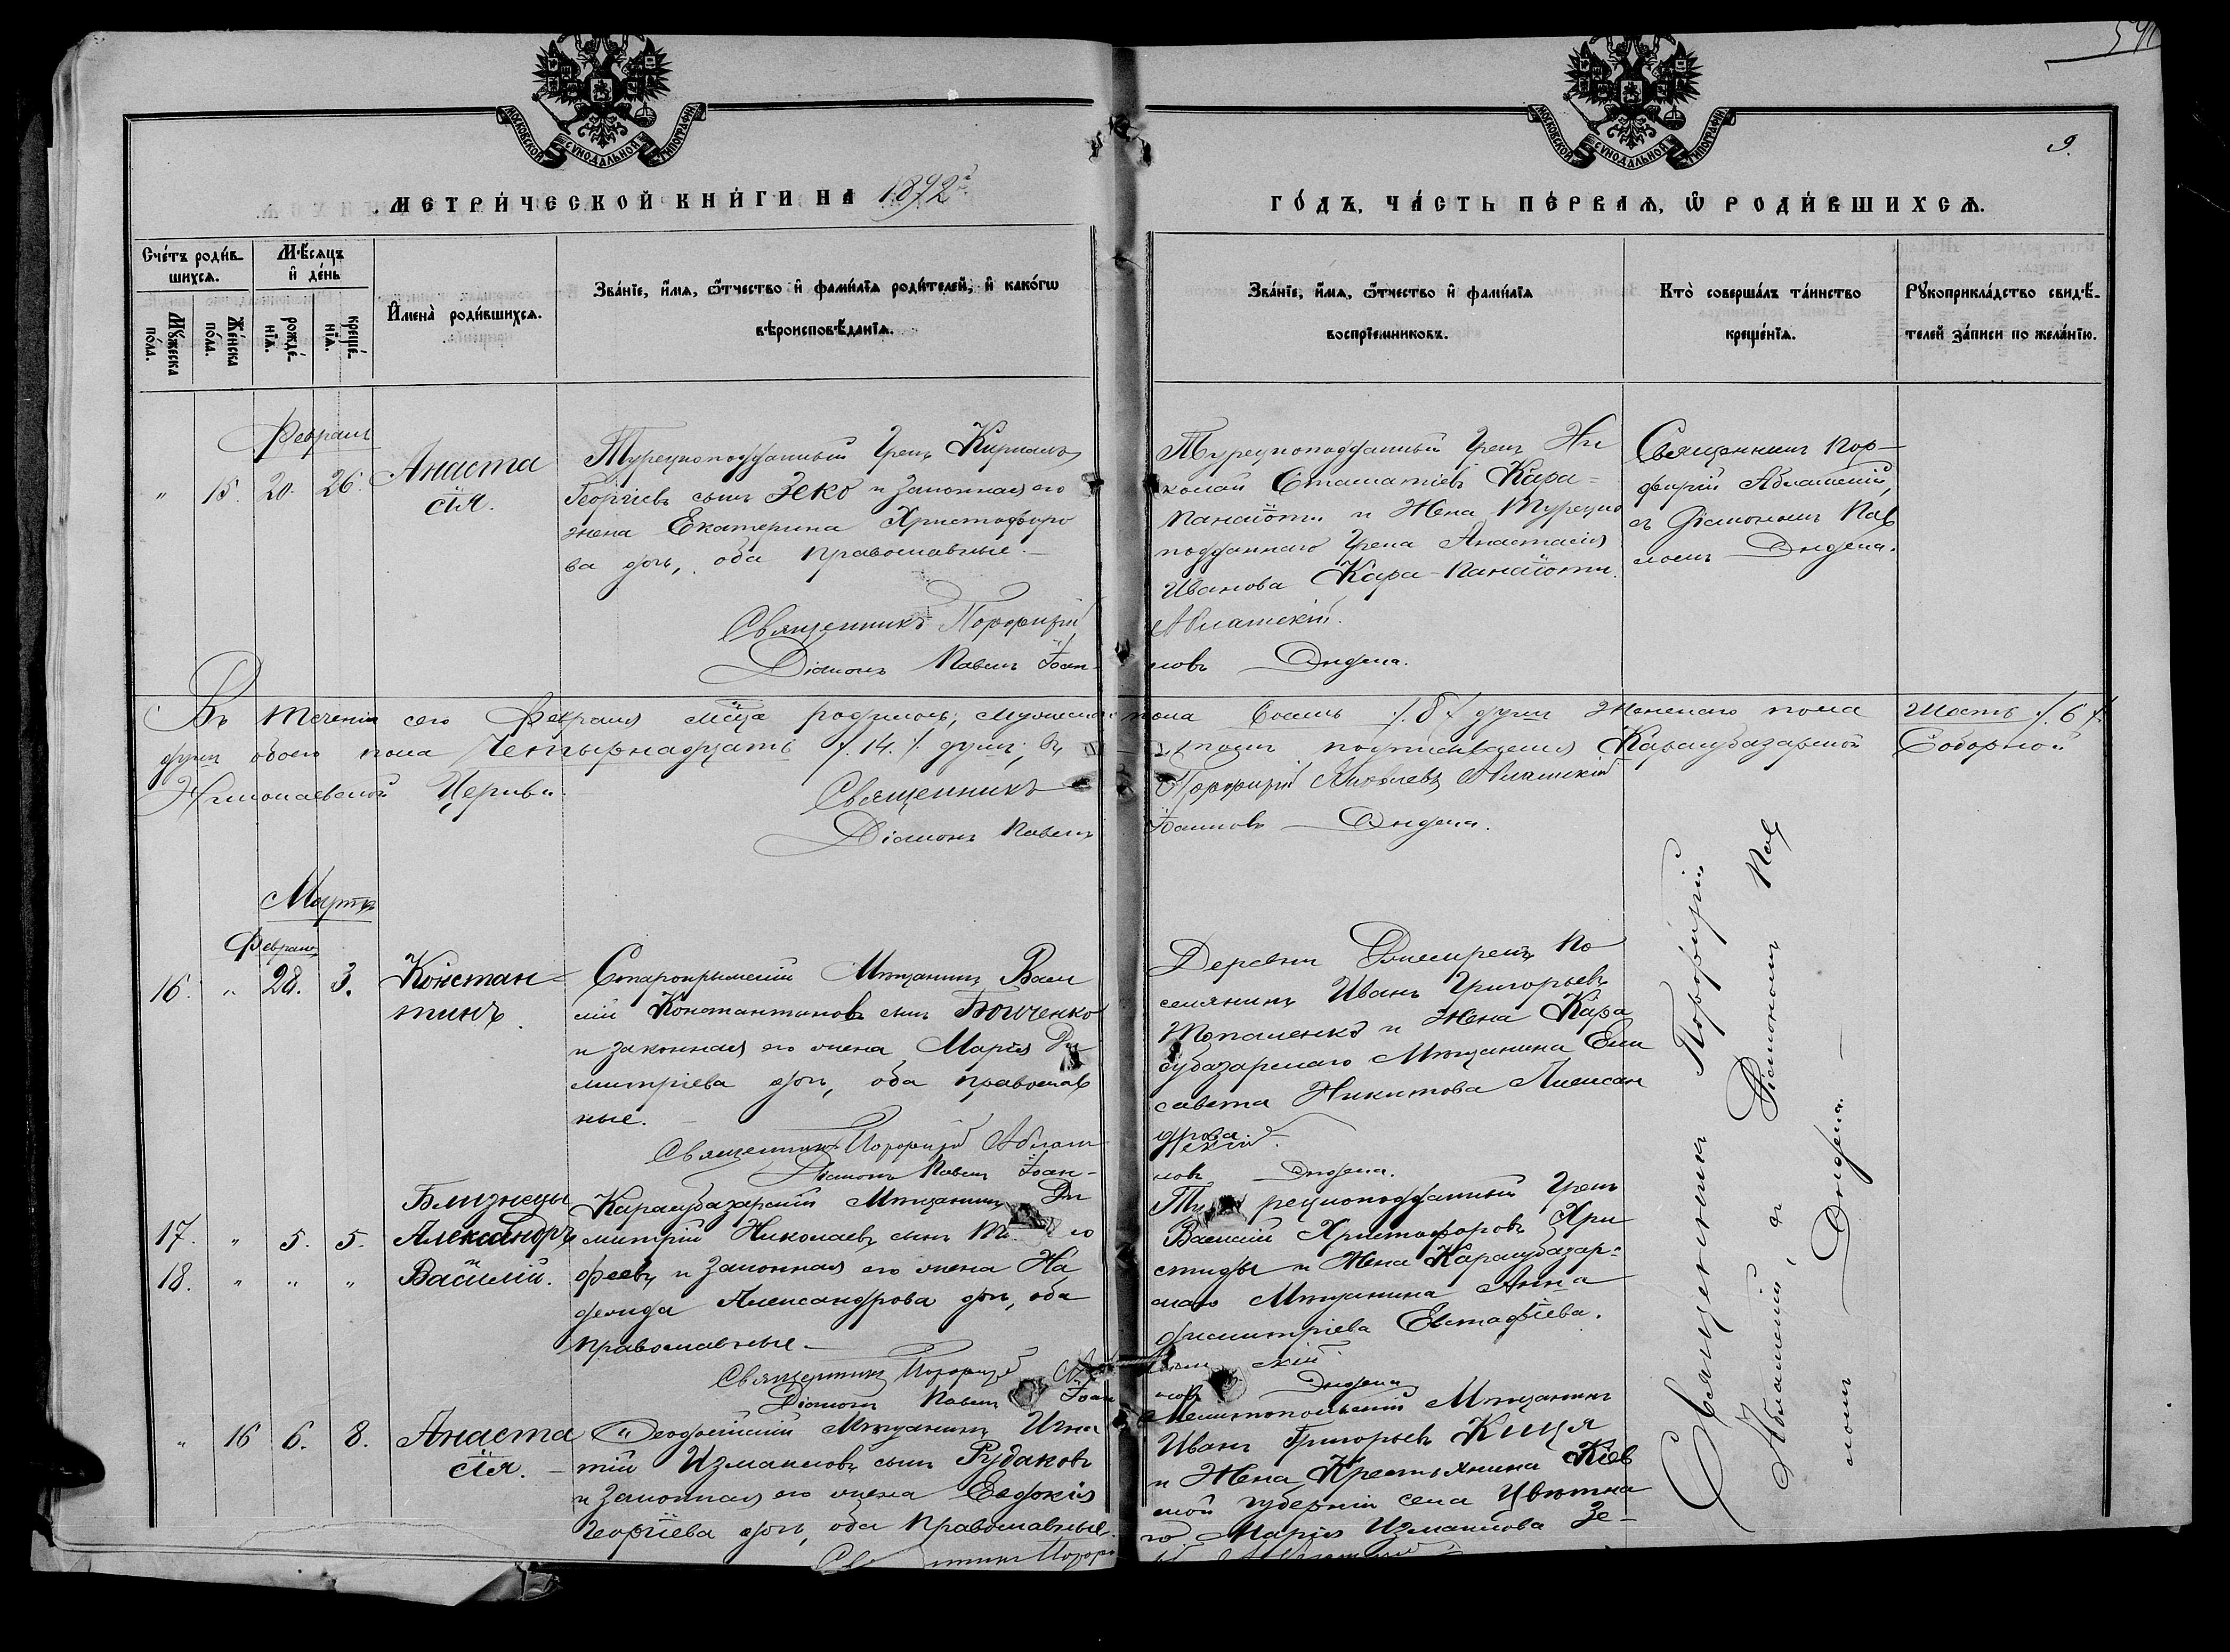 9.
МОСКОВСКОЙ СѴНОДАЛЬНОЙ ТИПОГРАФІИ
МОСКОВСКОЙ СѴНОДАЛЬНОЙ ТИПОГРАФІИ
МЕТРИ́ЧЕСКОЙ КНИ́ГИ НА 1892й
ГО́ДЪ, ЧА́СТЬ ПЕ́РВАѦ, Ѡ РОДИ́ВШИХСѦ.
Сче́тъ роди́в-
шихсѧ.
Мꙋ́жеска
по́ла.
Же́нска
по́ла.
Мѣ́сѧцъ
и҆ де́нь
рожде́-
нїѧ.
креще́-
нїѧ.
И҆мена̀ роди́вшихсѧ.
Зва́нїе, и҆́мѧ, ѻ҆́тчество и҆ фами́лїѧ роди́телей, и҆ како́гѡ
вѣроисповѣ́данїѧ.
Зва́нїе, и҆́мѧ, ѻ҆́тчество и҆ фами́лїѧ
воспрїемниковъ.
Кто̀ соверша́лъ та́инство
креще́нїѧ.
Рꙋкоприкла́дство свидѣ́-
телей за́писи по жела́нїю.
Февраль
" 15. 20. 26.
Анаста
сія.
Турецкоподданный Грекъ Кириакъ
Георгіевъ сынъ Зеко и законная его
жена Екатерина Христофоро
ва дочь, оба православные.—
Священникъ Порфирій
Діаконъ Павелъ Іоан-
Турецкоподданный Грекъ Ни
колай Стаматіевъ Кара-
Панаіоти и Жена Турецко
подданнаго Грека Анастасія
Иванова Кара-Панаіоти.
Аблашскій.
новъ Диздена.
Священникъ Пор-
фирій Аблашскій,
съ Діакономъ Пав
ломъ
Въ теченіи сего Февраля м-ца родилось, мужеска пола Восемь /.8/. душъ Женскаго пола Шесть /.6/.
душъ обоего пола Четырнадцать /.14./ душъ; въ
подписуемся Карасубазарской Соборной
Николаевской Церкви.
Священникъ Порфирій Яковлевъ Аблашскій
Діаконъ Павелъ Іоанновъ
Мартъ
Февраль
16. " 28. 3.
Констан-
тинъ.
Старокрымскій Мѣщанинъ Васи
лій Константиновъ сынъ Бойченко
и законная его жена Марія Ди
митріева дочь, оба православ
ные.
Священникъ Порфирій Аблаш
Діаконъ Павелъ Іоан-
Деревни По
селянинъ Иванъ Григорьевъ
Топаленко и Жена Кара
субазарскаго Мѣщанина Ели
савета Никитова Алексан
дрова.
скій.
новъ
Близнецы
17. " 5. 5. Александръ
18. " " " Василій.
Карасубазарскій Мѣщанинъ Ди
митрій Николаевъ сынъ
феевъ и законная его жена На
дежда Александрова дочь, оба
православные.—
Священникъ Порфирій
Діаконъ Павелъ Іоан
Турецкоподданный Грекъ
Василій Христофоровъ Хри
стиды и Жена Карасубазар-
скаго Мѣщанина Анна
Димитріева Евстафіева.
скій.
новъ
" 16 6. 8.
Анаста
сія.—
Ѳеодосійскій Мѣщанинъ Игна
тій Измаиловъ сынъ Рудаковъ
и законная его жена Евдокія
Георгіева дочь, оба православные.
Мелитопольскій Мѣщанинъ
Иванъ Григорьевъ Киця
и Жена Крестьянина Кіев
ской губерніи села Цвѣтна
го Марія Измаилова Зе-
Священникъ Порфирій
Аблашскій, съ Діакономъ Пав
ломъ